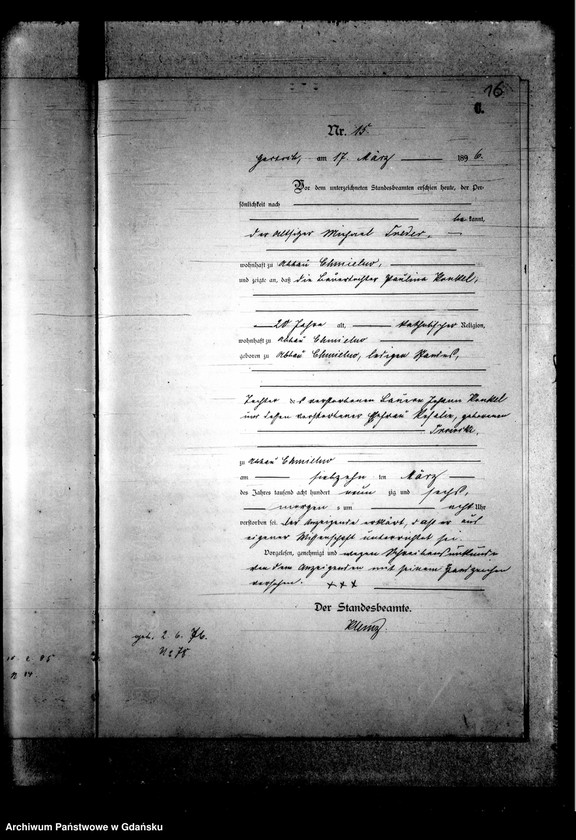 16
C.
Nr. 15.
am 17. März 1896.
Vor dem unterzeichneten Standesbeamten erschien heute, der Per-
sönlichkeit nach
bekannt,
der Altsitzer Michael Treder.
wohnhaft zu Abbau Chmielno,
und zeigte an, daß die Bauertochter Paulina Konkel,
20 Jahre alt, katholischer Religion,
wohnhaft zu Abbau Chmielno
geboren zu Abbau Chmielno, ledigen Standes,
Tochter des verstorbenen Bauern Johann Konkel
und dessen verstorbener Ehefrau Rosalie, geborenen
zu Abbau Chmielno
am siebzehn ten März
des Jahres tausend acht hundert neun zig und sechs,
morgens um acht Uhr
verstorben sei. Der Anzeigende erklärt, daß er aus
eigener Wissenschaft unterrichtet sei.
Vorgelesen, genehmigt und wegen Schreibensunkunde
von dem Anzeigenden mit seinem Handzeichen
versehen. +++
Der Standesbeamte.
geb. 2. 6. 76.
N: 75
Archiwum Państwowe w Gdańsku